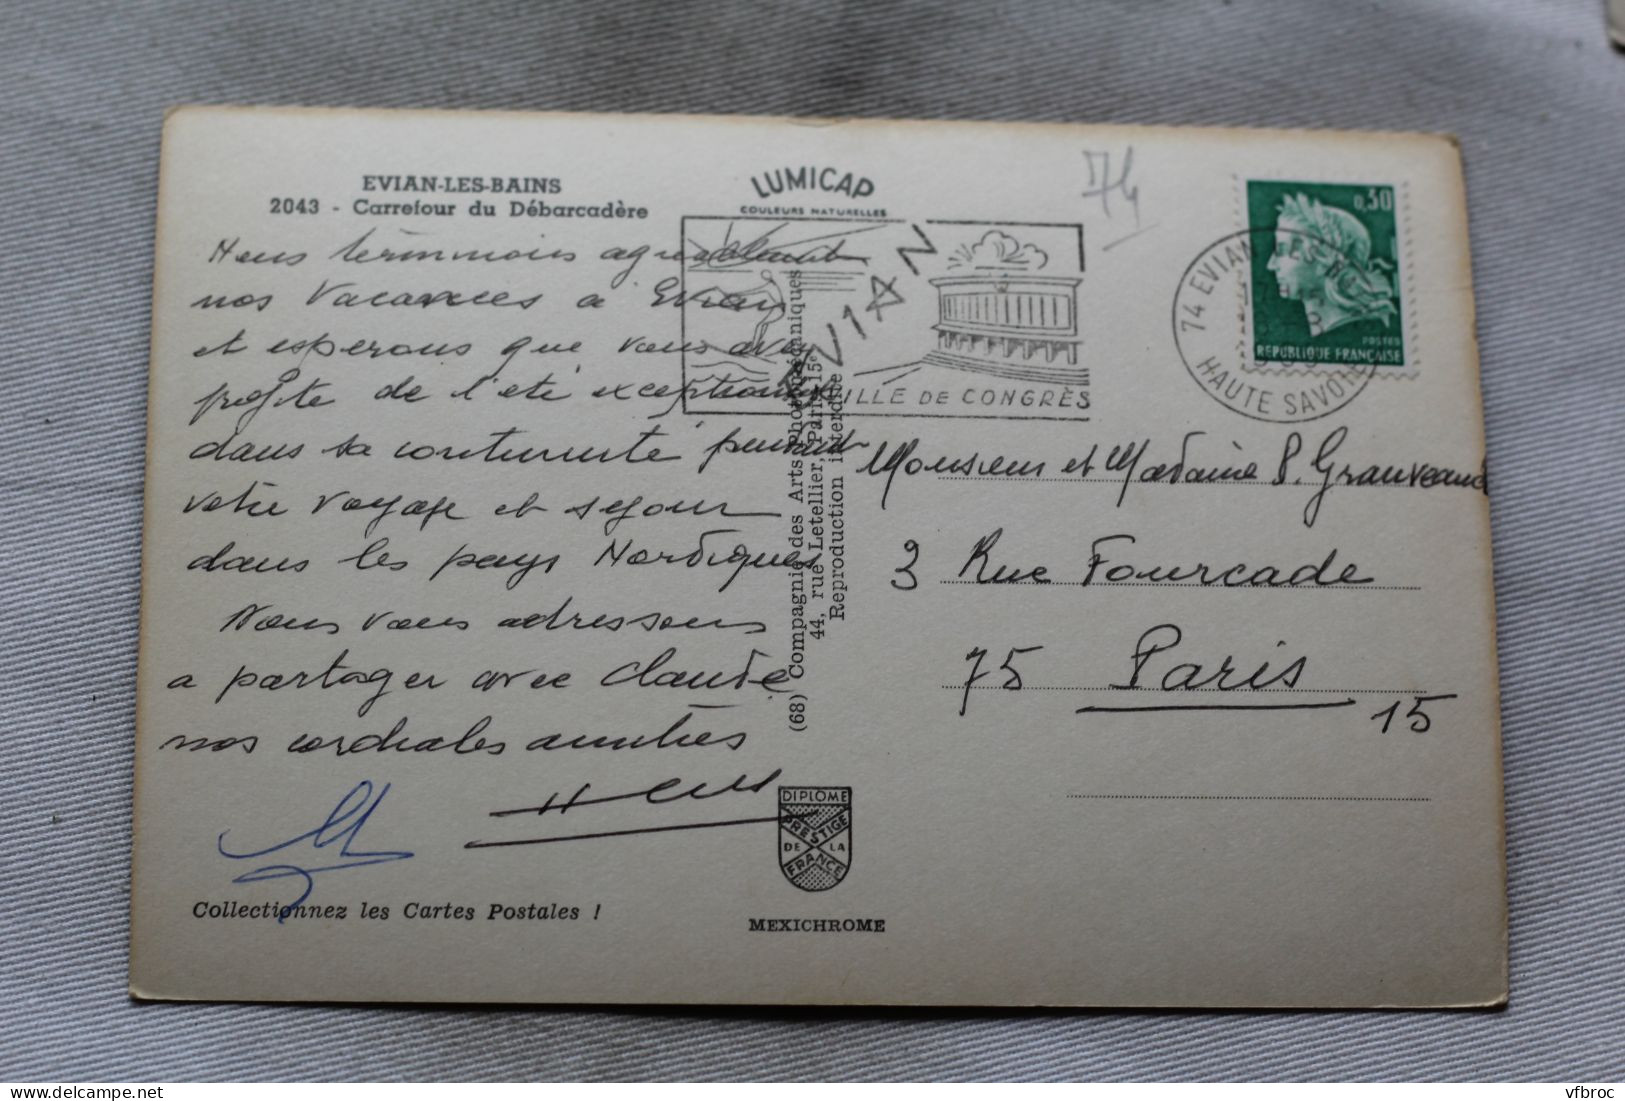 EVIAN-LES-BAINS
2043 - Carrefour du Débarcadère
Nous terminons agréablement
nos vacances a Evian
et esperons que vous avez
profite de l'eté exceptionnel
dans sa continuité pendant
votre voyage et sejour
dans les pays Nordiques
Nous vous adressons
a partager avec Claude
nos cordiales amitiés
Collectionnez les Cartes Postales !
LUMICAP
COULEURS NATURELLES
EVIAN
VILLE DE CONGRÈS
(68) Compagnie des Arts Photomécaniques
44, rue Letellier, Paris-15e
Reproduction interdite
DIPLOME
PRESTIGE
DE LA
FRANCE
MEXICHROME
74
0,30
POSTES
REPUBLIQUE FRANÇAISE
74 EVIAN LES BAINS
HAUTE SAVOIE
Monsieur et Madame P. Grauveaud
3 Rue Fourcade
75 Paris
15
vfbroc